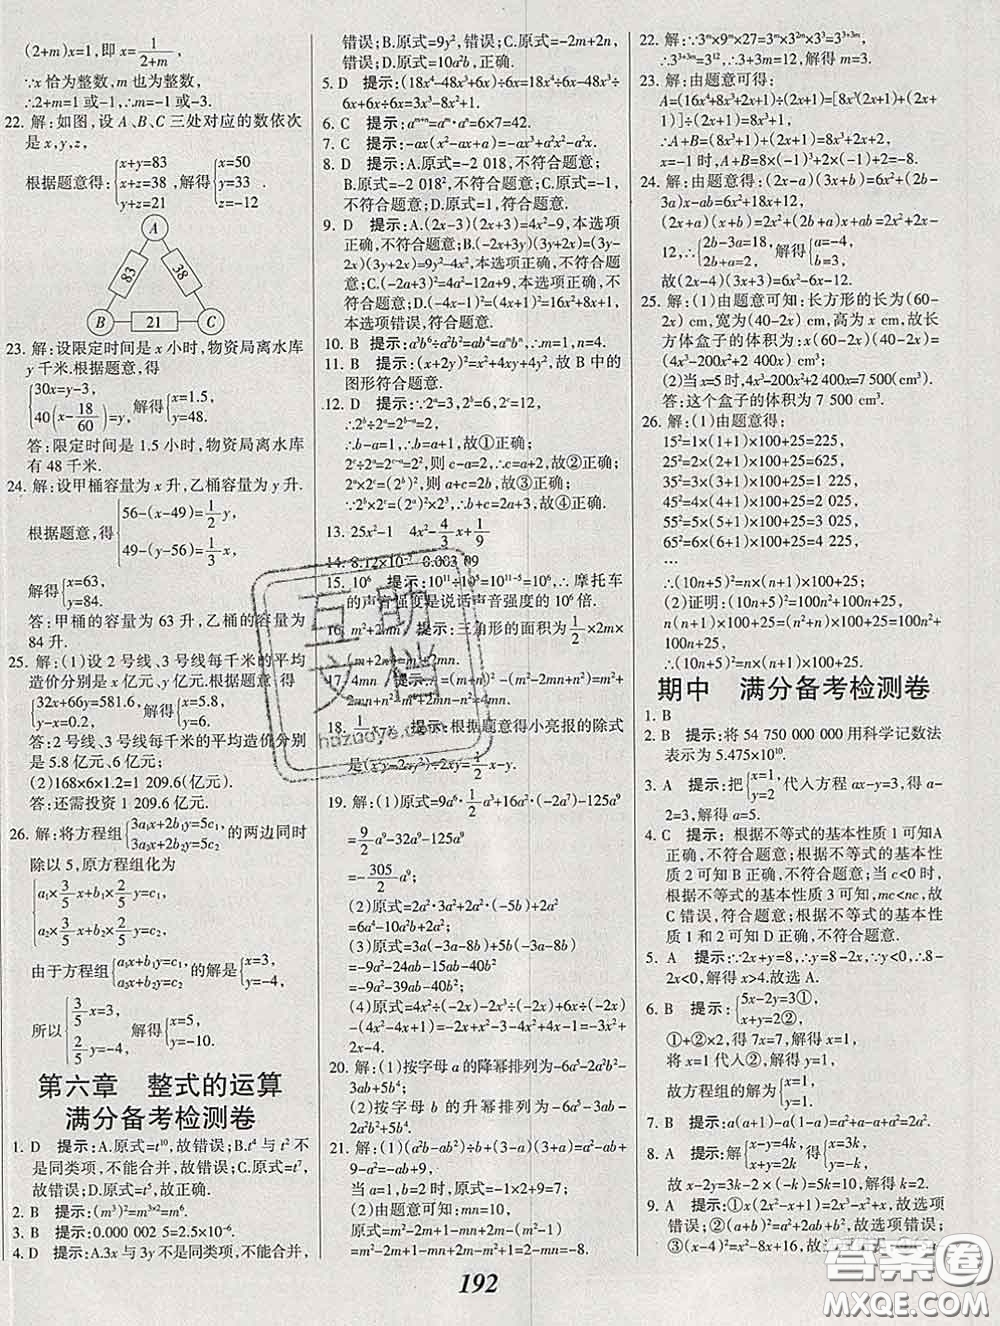 (2+m)x=1,即 x=1/(2+m),
∵x 恰为整数,m 也为整数,
∴2+m=1 或-1,∴m=-1 或-3.
22. 解:如图,设 A、B、C 三处对应的数依次
是 x,y,z,
根据题意得:{x+y=83 x+z=38 y+z=21,解得{x=50 y=33 z=-12.
A
83
38
B
21
C
23. 解:设限定时间是 x 小时,物资局离水库
y 千米.根据题意,得
{30x=y-3, 40(x-18/60)=y, 解得{x=1.5, y=48.
答:限定时间是 1.5 小时,物资局离水库
有 48 千米.
24. 解:设甲桶容量为 x 升,乙桶容量为 y 升.
根据题意,得{56-(x-49)=1/2 y, 49-(y-56)=1/3 x,
解得{x=63, y=84.
答:甲桶的容量为 63 升,乙桶的容量为
84 升.
25. 解:(1)设 2 号线、3 号线每千米的平均
造价分别是 x 亿元、y 亿元.根据题意,得
{32x+66y=581.6, y-x=0.2, 解得{x=5.8, y=6.
答:2 号线、3 号线每千米的平均造价分别
是 5.8 亿元、6 亿元;
(2)168×6×1.2=1 209.6(亿元).
答:还需投资 1 209.6 亿元.
26. 解:将方程组{3a₁x+2b₁y=5c₁, 3a₂x+2b₂y=5c₂的两边同时
除以 5,原方程组化为
{a₁×3/5 x+b₁×2/5 y=c₁, a₂×3/5 x+b₂×2/5 y=c₂,
由于方程组{a₁x+b₁y=c₁, a₂x+b₂y=c₂的解是{x=3, y=-4,
所以{3/5 x=3, 2/5 y=-4, 解得{x=5, y=-10.
第六章 整式的运算
满分备考检测卷
1. D 提示:A.原式=t¹⁰,故错误;B.t⁴ 与 t² 不
是同类项,不能合并,故错误;C.原式=t⁷,
故错误;D.原式=t⁵,故正确.
2. B 提示:(m³)²=m³ˣ²=m⁶.
3. B 提示:0.000 002 5=2.5×10⁻⁶.
4. D 提示:A.3x 与 3y 不是同类项,不能合并,
错误;B.原式=9y²,错误;C.原式=-2m+2n,
错误;D.原式=10a²b,正确.
5. D 提示:(18x⁴-48x³+6x)÷6x=18x⁴÷6x-48x³÷
6x+6x÷6x=3x³-8x²+1.
6. C 提示:aᵐ⁺ⁿ=aᵐ·aⁿ=6×7=42.
7. C 提示:-ax(x²-ax+a)=-ax³+a²x²-a²x.
8. D 提示:A.原式=-2 018,不符合题意;
B.原式=-2 018²,不符合题意;C.原式=-1,
不符合题意;D.原式=1,符合题意.
9. D 提示:A.(2x-3)(2x+3)=4x²-9,本选项
正确,不符合题意;B.(-2x+3y)(3y+2x)=(3y-
2x)(3y+2x)=9y²-4x²,本选项正确,不符合题
意;C.(-2a+3)²=4a²-12a+9,本选项正确,不
符合题意;D.(-4x-1)²=(4x+1)²=16x²+8x+1,
本选项错误,符合题意.
10. B 提示:a³b⁶÷a²b²=ab⁴=aᵐbⁿ,∴m=1,n=4.
11. B 提示:(x+2y)²=x²+4xy+4y²,故 B 中的
图形符合题意.
12. D 提示:∵2ᵃ=3,2ᵇ=6,2ᶜ=12,
∴2ᵇ÷2ᵃ=2ᵇ⁻ᵃ=2,
∴b-a=1,∴b=a+1,故①正确;
2ᶜ÷2ᵃ=2ᶜ⁻ᵃ=2²,则 c-a=2,故②正确;
2ᵃ×2ᶜ=(2ᵇ)²,则 a+c=2b,故③正确;
∵2ᵇ×2ᶜ=(2ᵃ)²×2³,∴b+c=2a+3,故④正确.
13. 25x²-1 4x²-4/3 x+1/9
14. 8.12×10⁻⁷ 0.003 09
15. 10⁶ 提示:10¹¹÷10⁵=10¹¹⁻⁵=10⁶,∴摩托车
的声音强度是说话声音强度的 10⁶ 倍.
16. m²+2mn 提示:三角形的面积为1/2×2m×
(m+2n)=m²+2mn.
17. 4mn 提示:(m+n)²-(m-n)²=m²+2mn+
n²-m²+2mn-n²=4mn.
18. 1/2 x-y 提示:根据题意得小亮报的除式
是(x²y-2xy²)÷2xy=1/2 x-y.
19. 解:(1)原式=9a⁶·1/2 a³+16a²·(-2a⁷)-125a⁹
=9/2 a⁹-32a⁹-125a⁹
=-305/2 a⁹;
(2)原式=2a²·3a²+2a²·(-5b)+2a²
=6a⁴-10a²b+2a²;
(3)原式=3a(-3a-8b)+5b(-3a-8b)
=-9a²-24ab-15ab-40b²
=-9a²-39ab-40b²;
(4)原式=4x²÷(-2x)-2x³÷(-2x)+6x÷(-2x)
-(4x²-4x+1)=-2x+x²-3-4x²+4x-1=-3x²+2x-4.
20. 解:(1)按字母 a 的降幂排列为-6a⁵-2a²b²-
3ab³+5b⁴;
(2)按字母 b 的升幂排列为-6a⁵-3ab³-
2a²b²+5b⁴.
21. 解:(1)(a²b-ab²)÷ab+(3-a)(3+a)=a-b+
9-a²=-a²+a-b+9,
当 a=1,b=2 时,原式=-1²+1-2+9=7;
(2)由题意可知:mn=10,
原式=m²-2m+1-mn-2m+m²-1+2m-
=m²-2m-1+mn-2m-m²+1+2m-mn=
22. 解:∵3ᵐ×9ᵐ×27=3ᵐ×3²ᵐ×3³=3³⁺³ᵐ,
∴3³⁺³ᵐ=3¹²,∴3+3m=12,解得 m=3.
23. 解:由题意可得:
A=(16x⁴+8x³+2x+1)÷(2x+1)=[8x³(2x+1)+(2x+
1)]÷(2x+1)=8x³+1,
∴A+B=(8x³+1)+(2x+1)=8x³+2x+2,
x=-1 时,A+B=8×(-1)³+2×(-1)+2=-8.
24. 解:由题意得:(2x-a)(3x+b)=6x²+(2b-
3a)x-ab=6x²+18x+12,
(2x+a)(x+b)=2x²+(2b+a)x+ab=2x²+2x-
12,∴{2b-3a=18, 2b+a=2, 解得{a=-4, b=3,
故(2x-4)(3x+3)=6x²-6x-12.
25. 解:(1)由题意可知:长方形的长为(60-
2x) cm,宽为(40-2x) cm,高为 x cm,故长
方体盒子的体积为:x(60-2x)(40-2x)=
(4x³-200x²+2 400x) cm³;
(2)当 x=5 时,4x³-200x²+2 400x=7 500(cm³).
答:这个盒子的体积为 7 500 cm³.
26. 解:(1)由题意得:
15²=1×(1+1)×100+25=225,
25²=2×(2+1)×100+25=625,
35²=3×(3+1)×100+25=1 225,
45²=4×(4+1)×100+25=2 025,
55²=5×(5+1)×100+25=3 025,
65²=6×(6+1)×100+25=4 225,
…
∴(10n+5)²=n×(n+1)×100+25;
(2)证明:(10n+5)²=100n²+100n+25,
n(n+1)×100+25=(n²+n)×100+25=100n²+
100n+25,
∴(10n+5)²=n×(n+1)×100+25.
期中 满分备考检测卷
1. B
2. B 提示:将 54 750 000 000 用科学记数法
表示为 5.475×10¹⁰.
3. A 提示:把{x=1, y=2 代入方程 ax-y=3,得 a-
2=3,解得 a=5.
4. C 提示:根据不等式的基本性质 1 可知A
正确,不符合题意;根据不等式的基本性
质 2 可知 B 正确,不符合题意;当 c<0 时,根
据不等式的基本性质 3 可知,mc<nc,故
C 错误,符合题意;根据不等式的基本性
质 1 和 2 可知 D 正确,不符合题意.
5. A 提示:∵2x+y=8,∴y=8-2x,∵y<0,∴8-
2x<0,解得 x>4.故选 A.
6. B 提示:{5x-2y=3①, x+2y=7②,
①+②×1 得 7x=7,解得 x=1,
将 x=1 代入②,解得 y=1,
故方程组的解为{x=1, y=1.
7. B 提示:a(a+1)-a(1-a)=a²+a-a+a²=2a².
8. A 提示:解{x-y=4k, x+y=2k,得{x=3k, y=-k,
故 x-2y=3k-2×(-k)=5k=10,解得 k=2.
9. A 提示:①x(2x²-x+1)=2x³-x²+x,故选项
错误;②(a+b)²=a²+2ab+b²,故选项错误;
③(x-4)²=x²-8x+16,故选项
192
互助
文档
huzuoye.com
答案圈
MXQE.COM